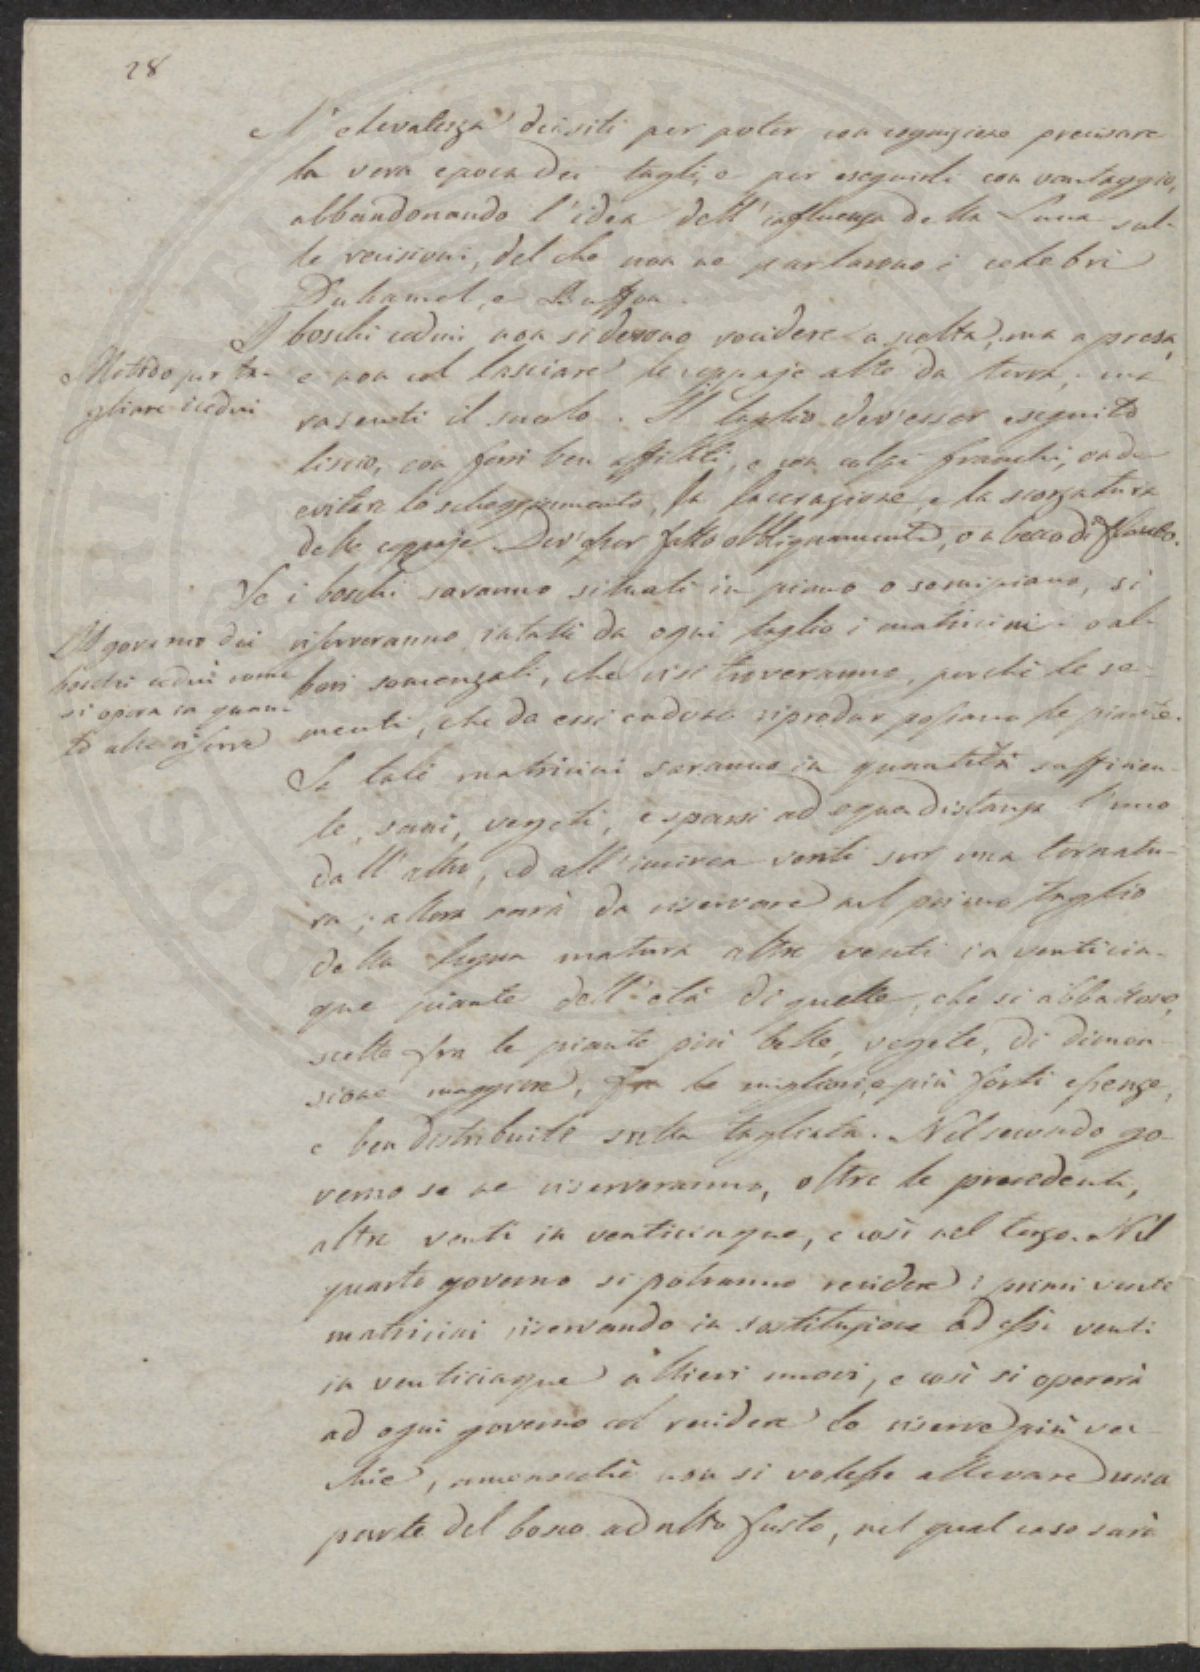 28
l'elevatezza dei siti per poter con cognizione precisare
la vera epoca dei tagli, e per eseguirli con vantaggio,
abbandonando l'idea dell'influenza della Luna sul-
le recisioni, del che non ne parlarono i celebri
Duhamel, e Buffon.
I boschi cedui non si devono recidere a scelta, ma a presa,
Metodo per ta-
gliare i cedui
e non col lasciare le ceppaje alte da terra, ma
rasenti il suolo. Il taglio dev'esser eseguito
liscio, con ferri ben affilati, e con colpi franchi, onde
evitare lo scheggiamento, la lacerazione, e la scorzatura
delle ceppaje. Dev'esser fatto obbliquamente, o a becco di flauto.
Se i boschi saranno situati in piano o semipiano, si
Al governo dei
boschi cedui come
si opera in quan-
to alle riserve
riserveranno intatti da ogni taglio i matricini o al-
beri semenzali, che visi troveranno, perchè le se-
menti, che da essi cadono riprodur possano le piante.
Se tali matricini saranno in quantità sufficien-
te, sani, vegeti, e sparsi ad egua distanza l'uno
dall'altro, ed all'incirca venti sur una tornatu-
ra; allora sarà da riservare nel primo taglio
della legna matura altre venti in venticin-
que piante dell'età di quelle, che si abbattono,
scelte fra le piante più belle, vegete, di dimen-
sione maggiore, fra le migliori, e più forti essenze,
e ben distribuite sulla tagliata. Nel secondo go-
verno se ne riserveranno, oltre le precedenti,
altre venti in venticinque, e così nel terzo. Nel
quarto governo si potranno recidere i primi venti
matricini riservando in sostituzione ad essi venti
in venticinque allievi nuovi, e così si opererà
ad ogni governo col recidere le riserve più vec-
chie, ammenochè non si volesse allevare una
parte del bosco ad alto fusto, nel qual caso sarà